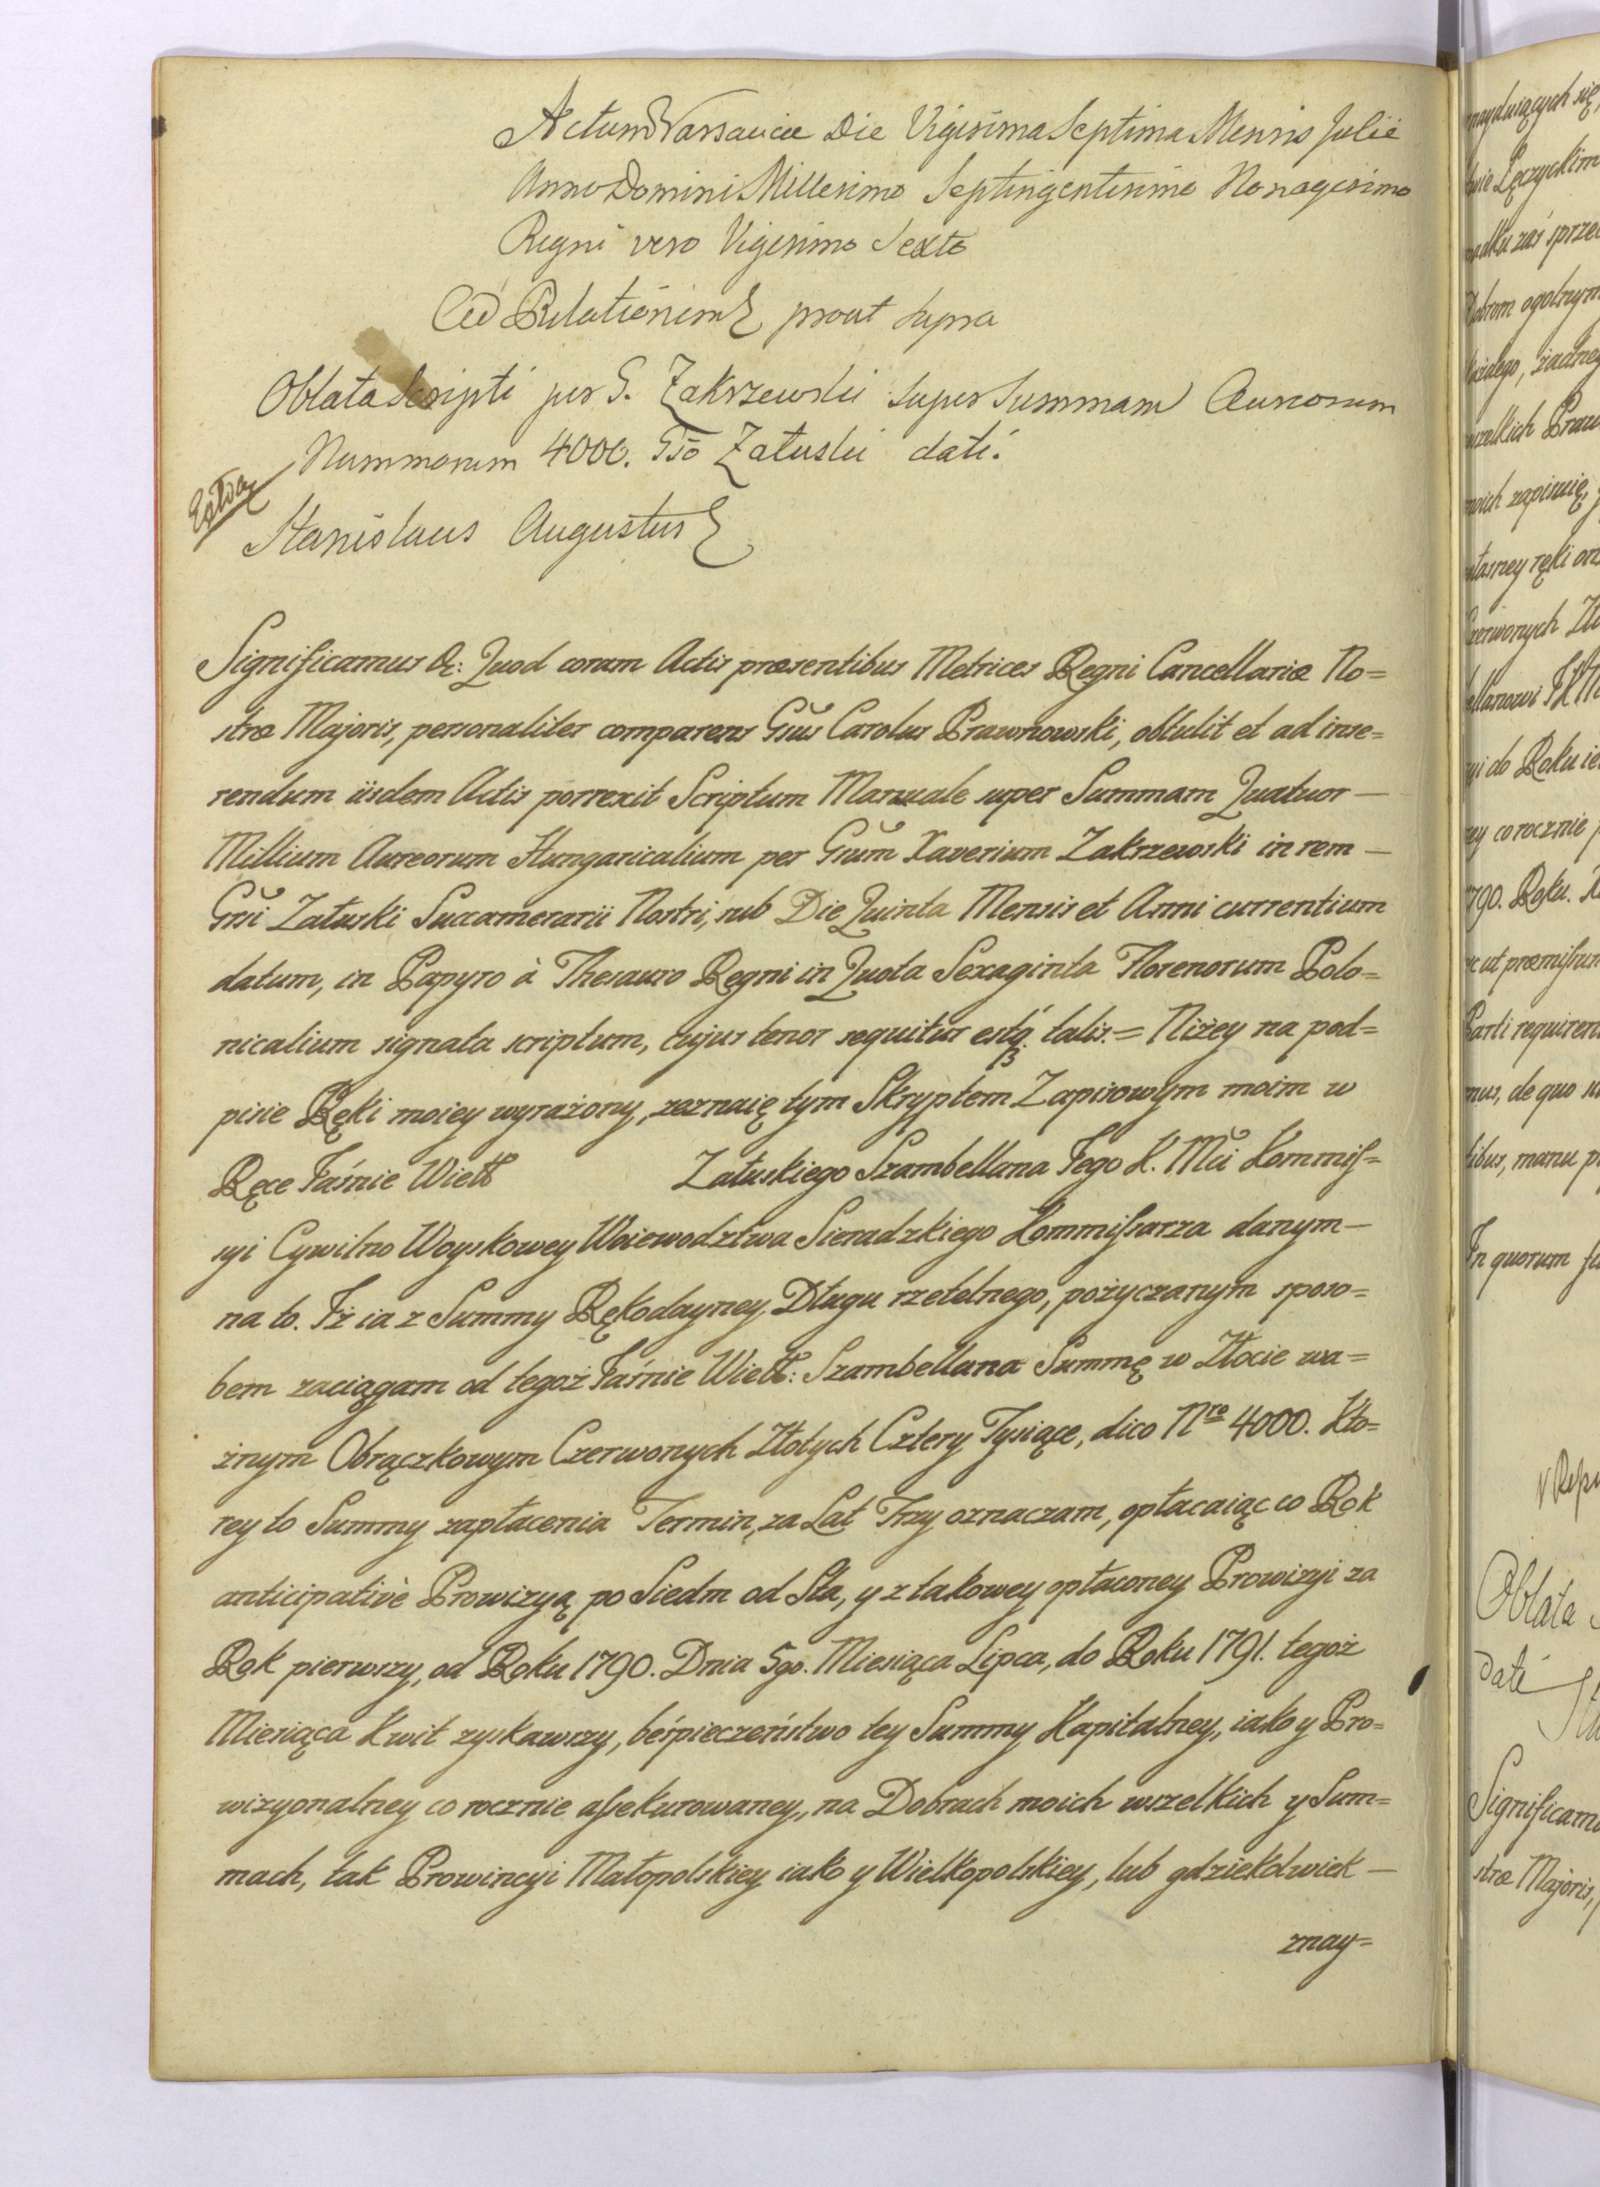 Actum Varsaviæ Die Vigesima Septima Mensis Julii
Anno Domini Millesimo Septingentesimo Nonagesimo
Regni vero Vigesimo Sexto
Ad Relationem prout supra
Oblata Scripti per G. Zakrzewski super Summam Aureorum
Nummorum 4000. Gso Załuski dati.
Stanislaus Augustus
Significamus &: Quod coram Actis præsentibus Metrices Regni Cancellariæ No=
stræ Majoris, personaliter comparens Gsus Carolus Prawnowski, obtulit et ad inse=
rendum iisdem Actis porrexit Scriptum Manuale super Summam Quatuor —
Millium Aureorum Hungaricalium per Gsum Xaverium Zakrzewski in rem —
Gsi Załuski Succamerarii Nostri, sub Die Quinta Mensis et Anni currentium
datum, in Papyro à Thesauro Regni in Quota Sexaginta Florenorum Polo=
nicalium signata scriptum, cujus tenor sequitur estq3 talis. = Niżey na pod=
pisie Ręki moiey wyrażony, zeznaię tym Skryptem Zapisowym moim w
Ręce Jaśnie Wielł Załuskiego Szambellana Jego K. Mci Kommiss=
syi Cywilno Woyskowey Woiewodztwa Sieradzkiego Kommissarza danym —
na to. Iż ia z Summy Rękodayney Długu rzetelnego, pożyczanym sposo=
bem zaciągam od tegoż Jaśnie Wielł: Szambellana Summę w Złocie wa=
żnym Obrączkowym Czerwonych Złotych Cztery Tysiące, dico Nro 4000. Kto=
rey to Summy zapłacenia Termin, za Lat Trzy oznaczam, opłacaiąc co Rok
anticipativè Prowizyą po Siedm od Sta, y z takowey opłaconey Prowizyi za
Rok pierwszy, od Roku 1790. Dnia 5go. Miesiąca Lipca, do Roku 1791. tegoż
Miesiąca Kwit zyskawszy, beśpieczeństwo tey Summy Kapitalney, iako y Pro=
wizyonalney co rocznie assekurowaney, na Dobrach moich wszelkich y Sum=
mach, tak Prowincyi Małopolskiey iako y Wielkopolskiey, lub gdziekolwiek —
znay=